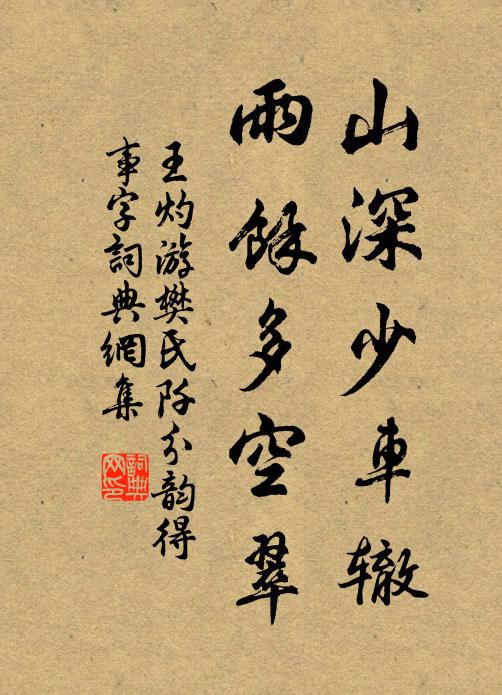 山深少車辙
雨餘多空翠
王灼游樊氏阡分韵得
事字詞典網集
詞典
网印